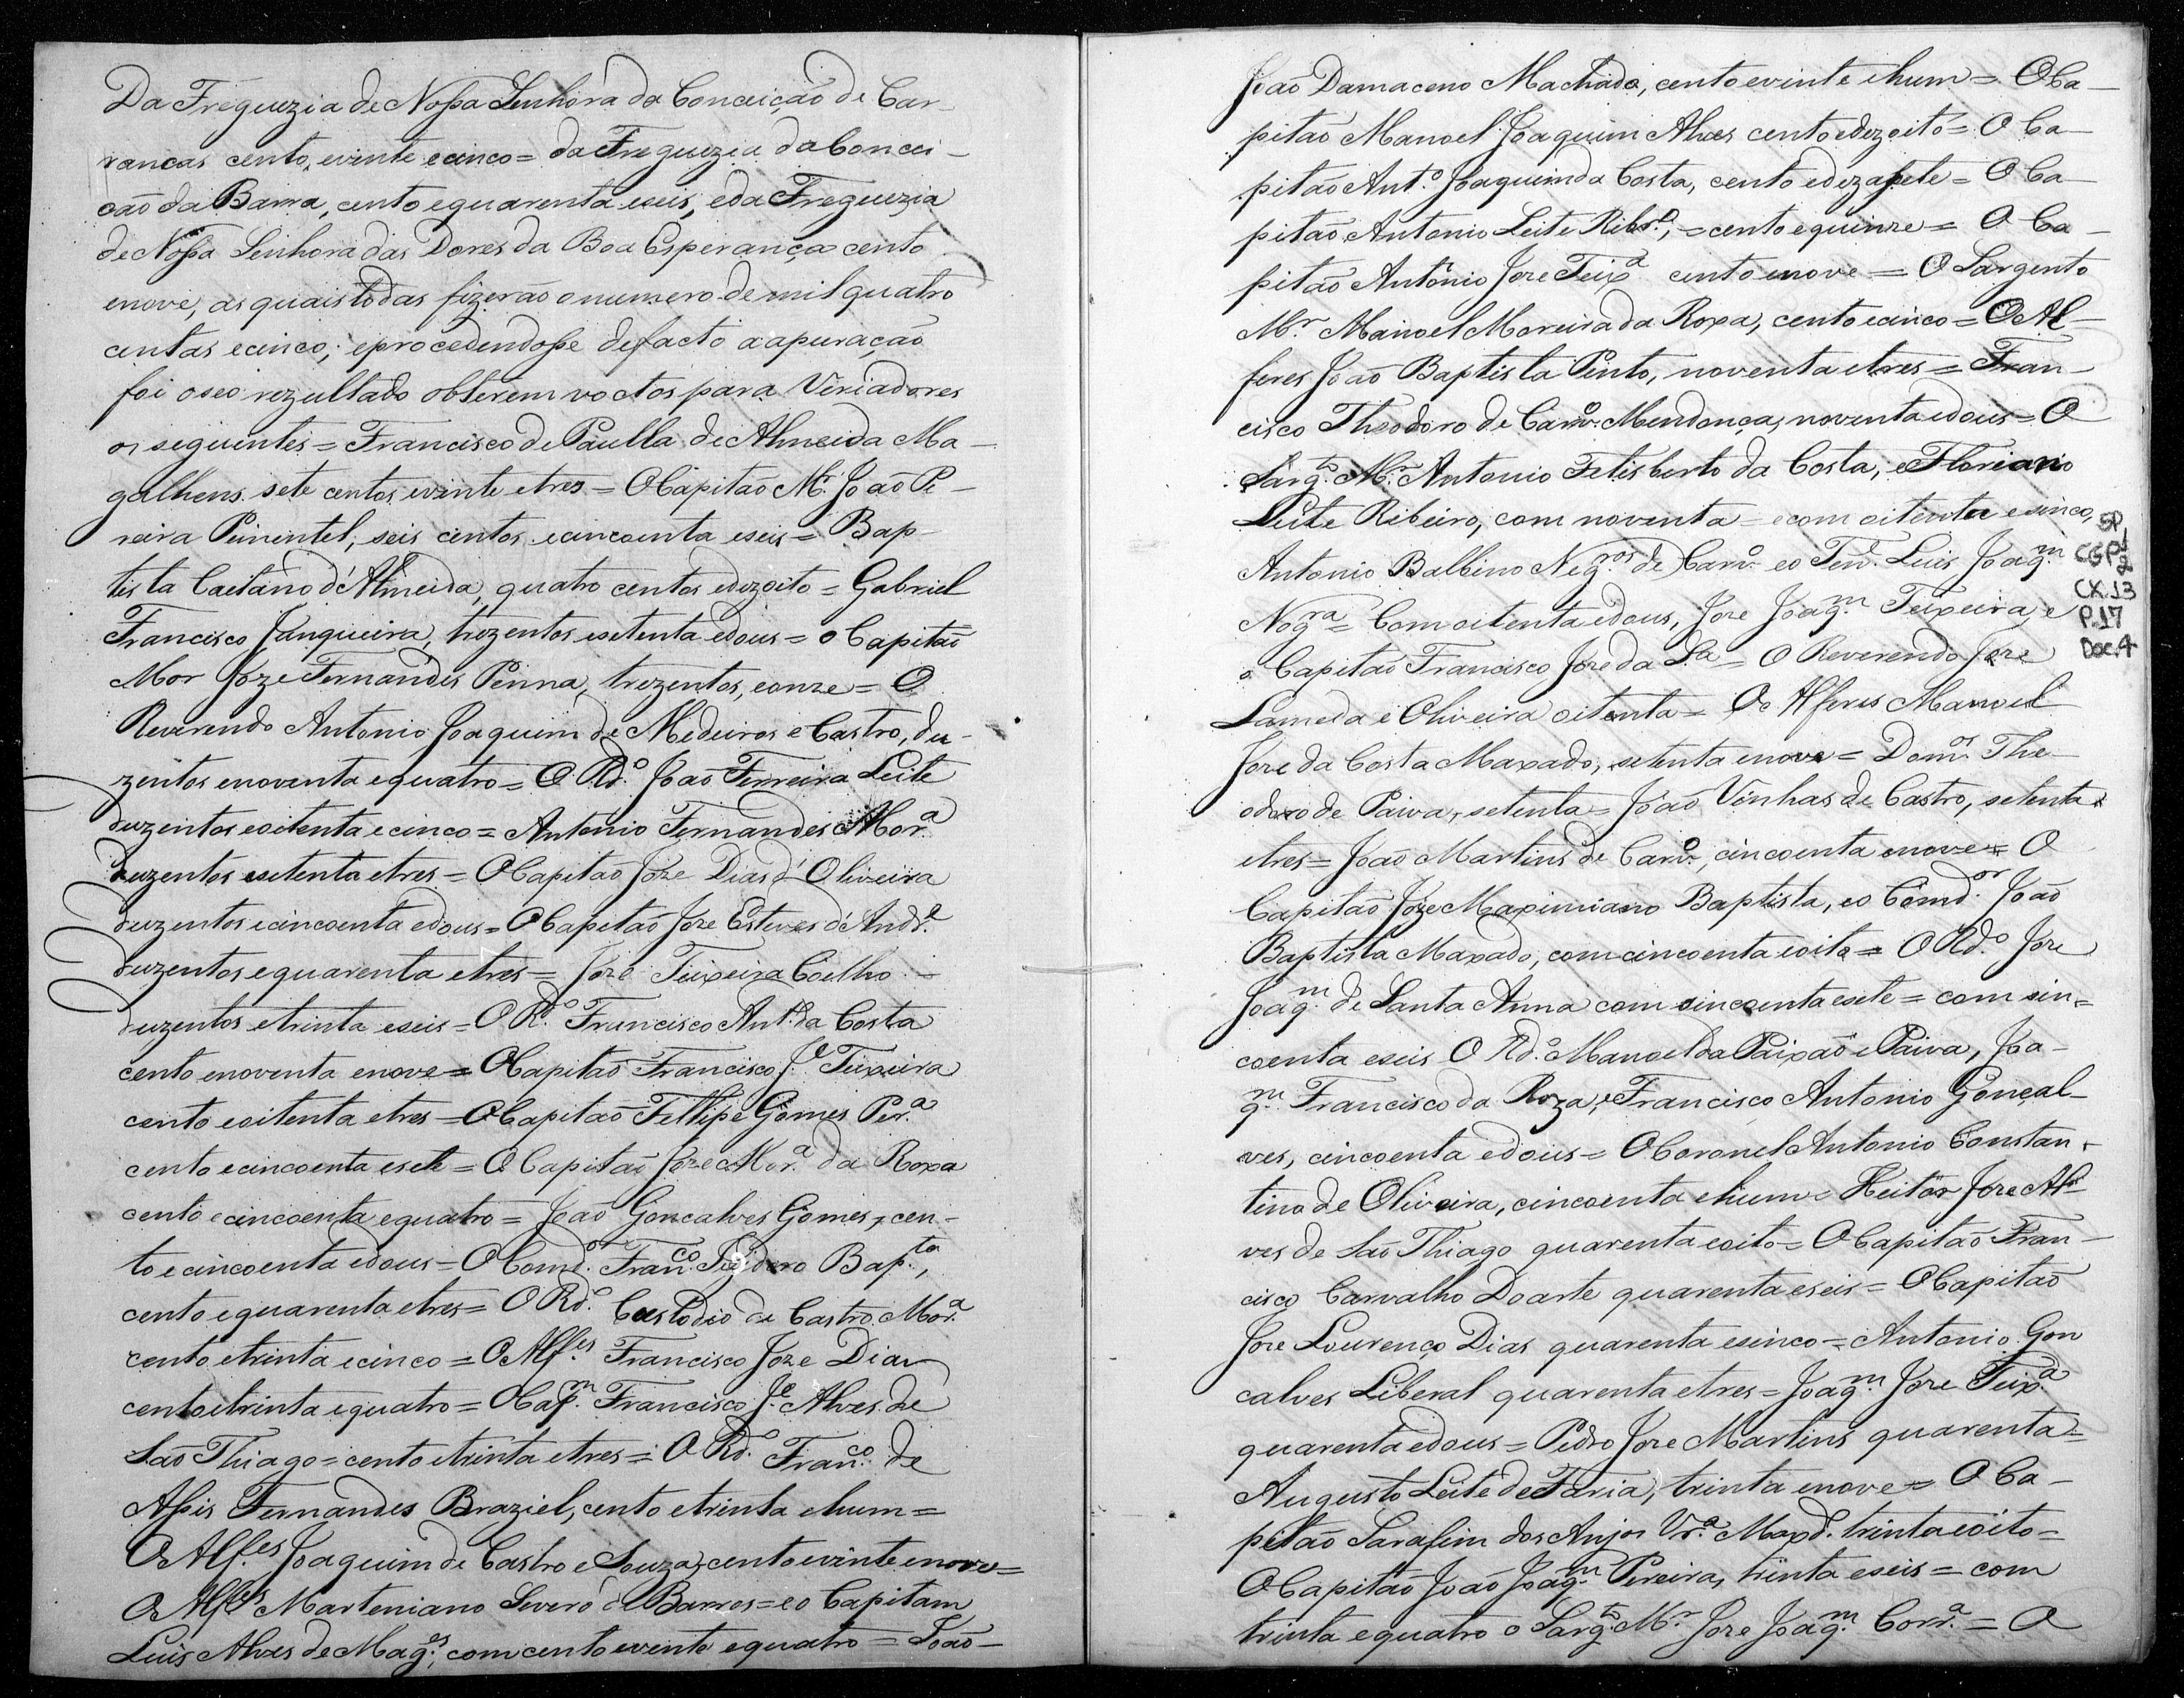 Da Freguezia de Nossa Senhora da Conceição de Car-
rancas cento, evinte ecinco = da Freguezia da Concei-
cão da Barra, cento equarenta eseis, eda Freguezia
de Nossa Senhora das Dores da Boa Esperança cento
enove, as quais todas fizerão o numero de mil quatro
centas ecinco; eprocedendosse defacto a apuração
foi oseo rezultado obterem voctos para Veriadores
os seguintes = Francisco de Paulla de Almeida Ma-
galhens sete centos evinte etres = O Capitão M.r João Pe-
reira Pimentel, seis centos ecincoenta eseis = Bap-
tista Caetano d'Almeida, quatro centos edezoito = Gabriel
Francisco Junqueira, trezentos esetenta edous = o Capitão
Mor Joze Fernandes Penna, trezentos, eonze = O
Reverendo Antonio Joaquim de Medeiros e Castro, du-
zentos enoventa equatro = O Rd.o João Ferreira Leite
duzentos eoitenta ecinco = Antonio Fernandes Mor.a
duzentos esetenta etres = O Capitão Joze Dias d'Oliveira
duzentos ecincoenta edous = O Capitão Joze Esteves d'Andr.e
duzentos equarenta etres = Joze Teixeira Coelho =
duzentos etrinta eseis = O R.do Francisco Ant.o da Costa
cento enoventa enove = O Capitão Francisco J.e Teixeira
cento eoitenta etres = O Capitão Fellipe Gomes Per.a
cento ecincoenta esete = O Capitão Joze Mor.a da Roxa
cento ecincoenta equatro = João Goncalves Gomes, cen-
to ecincoenta edous = O Comd.or Fran.co Izidoro Bap.ta,
cento equarenta etres = O Rd.o Custodio de Castro Mor.a
cento etrinta ecinco = O Alf.es Francisco Joze Dias
cento etrinta equatro = O Cap.m Francisco J.e Alves de
São Thiago = cento etrinta etres = O Rd.o Fran.co de
Assis Fernandes Braziel, cento etrinta ehum =
O Alf.es Joaquim de Castro e Souza, cento evinte enove =
O Alf.es Marteniano Severo de Barros = eo Capitam
Luis Alves de Mag.es, com cento evente equatro = João
João Damaceno Machado, cento evinte ehum = O Ca-
pitão Manoel Joaquim Alves cento edezoito = O Ca-
pitão Ant.o Joaquim da Costa, cento edezassete = O Ca-
pitão Antonio Leite Ribr.o, = cento equinze = O Ca-
pitão Antonio Joze Teix.a cento enove = O Sargento
M.r Manoel Moreira da Roxa, cento ecinco = O Al-
feres João Baptista Pinto, noventa etres = Fran-
cisco Theodoro de Carv.o Mendonça, noventa edous = O
Sarg.to M.r Antonio Felisberto da Costa, e Floriano
Leite Ribeiro, com noventa = ecom oitenta ecinco,
Antonio Balbino Neg.ros de Carv.o eo Ten.e Luis Joaq.m
Nog.ra = Com oitenta edous, Joze Joaq.m Teixeira, e
o Capitão Francisco Joze da S.a = O Reverendo Joze
Lameda e Oliveira oitenta = O Alferes Manoel
Joze da Costa Maxado, setenta enove = Dom.os The-
odoro de Paiva, setenta = João Vinhas de Castro, setenta
etres = João Martins de Carv.o, cincoenta enove = O
Capitão Joze Maximiano Baptista, eo Comd.or João
Baptista Maxado, com cincoenta eoito = O Rd.o Joze
Joaq.m de Santa Anna com sincoenta esete = com sin=
coenta eseis O Rd.o Manoel da Paixão e Paiva, Joa-
q.m Francisco da Roza, e Francisco Antonio Gonçal-
ves, cincoenta edous = O Coronel Antonio Constan-
tino de Oliveira, cincoenta ehum = Heitor Joze Al-
ves de São Thiago quarenta eoito = O Capitão Fran-
cisco Carvalho Doarte quarenta eseis = O Capitão
Joze Lourenço Dias quarenta esinco = Antonio Gon
calves Liberal quarenta etres = Joaq.m Joze Teix.a
quarenta edous = Pedro Joze Martins quarenta =
Augusto Leite de Faria, trinta enove = O Ca-
pitão Sarafim dos Anjos Vr.a Maxd.o trinta eoito =
O Capitão João Joaq.m Pereira, trinta eseis = com
trinta equatro o Sarg.to M.r Joze Joaq.m Corr.a = O
SP
CGP 1/2
CX.13
P.17
Doc.4